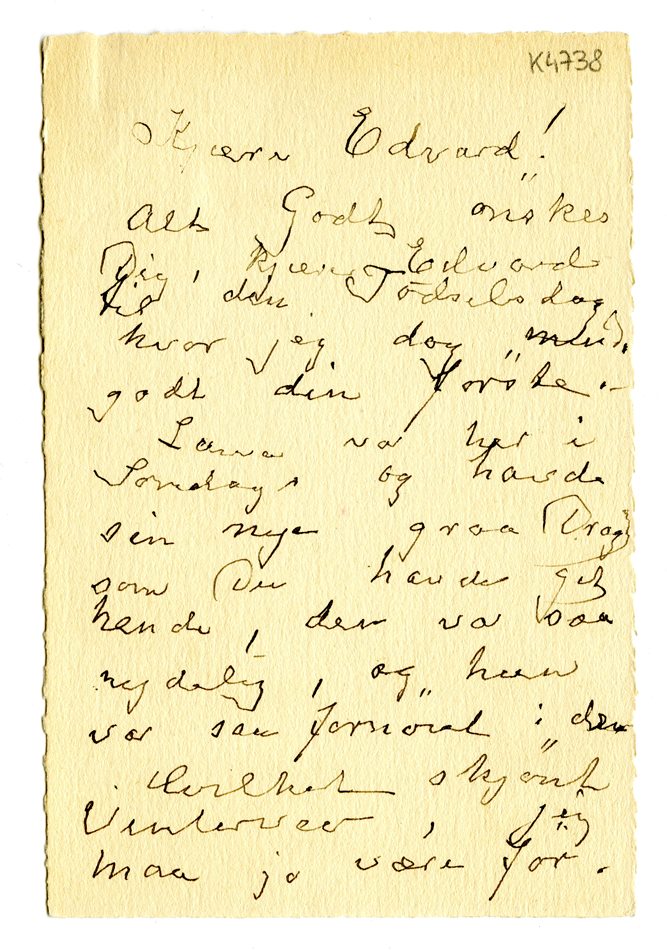 K4738
Kjære Edvard!
Alt Godt önskes
Dig, kjære Edvard
til din Födselsdag,
hvor jeg dog mind.
godt din förste.–
Laura va her i
Söndags og havde
sin nye graa Dragt
som Du havde git
hende, den va saa
nydelig, og hun
var saa fornöiet i den
Hvilket skjönt
Vinterveir, jeg
maa jo være for.